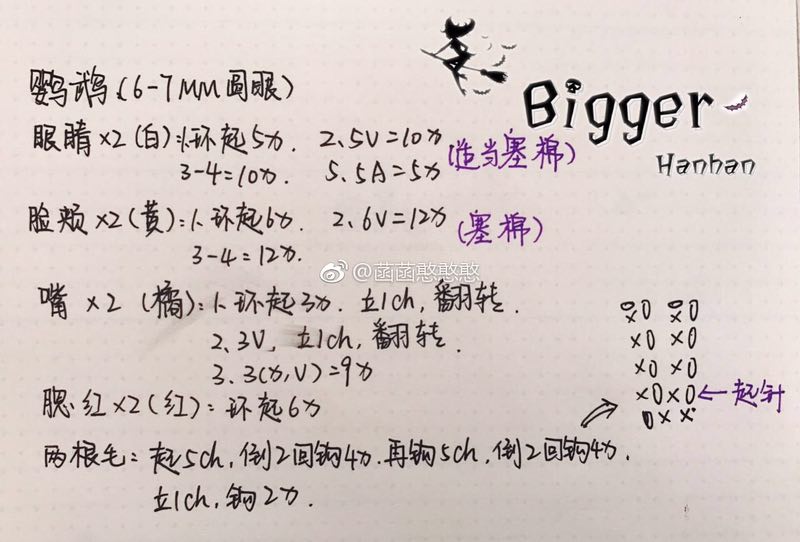 Bigger
Hanhan
鹦鹉(6-7MM圆眼)
眼睛×2(白):1.环起5X. 2.5V=10X
3-4=10X. 5.5A=5X (适当塞棉)
脸颊×2(黄):1.环起6X. 2.6V=12X
3-4=12X. (塞棉)
@菡菡憨憨憨
嘴×2(橘):1.环起3X.立1ch,翻转.
2.3V,立1ch,翻转.
3.3(X,V)=9X
腮红×2(红):环起6X
两根毛:起5ch,倒2回钩4X.再钩5ch,倒2回钩4X.
立1ch,钩2X.
X0 X0
X0 X0
X0 X0
X0X0←起针
0XX